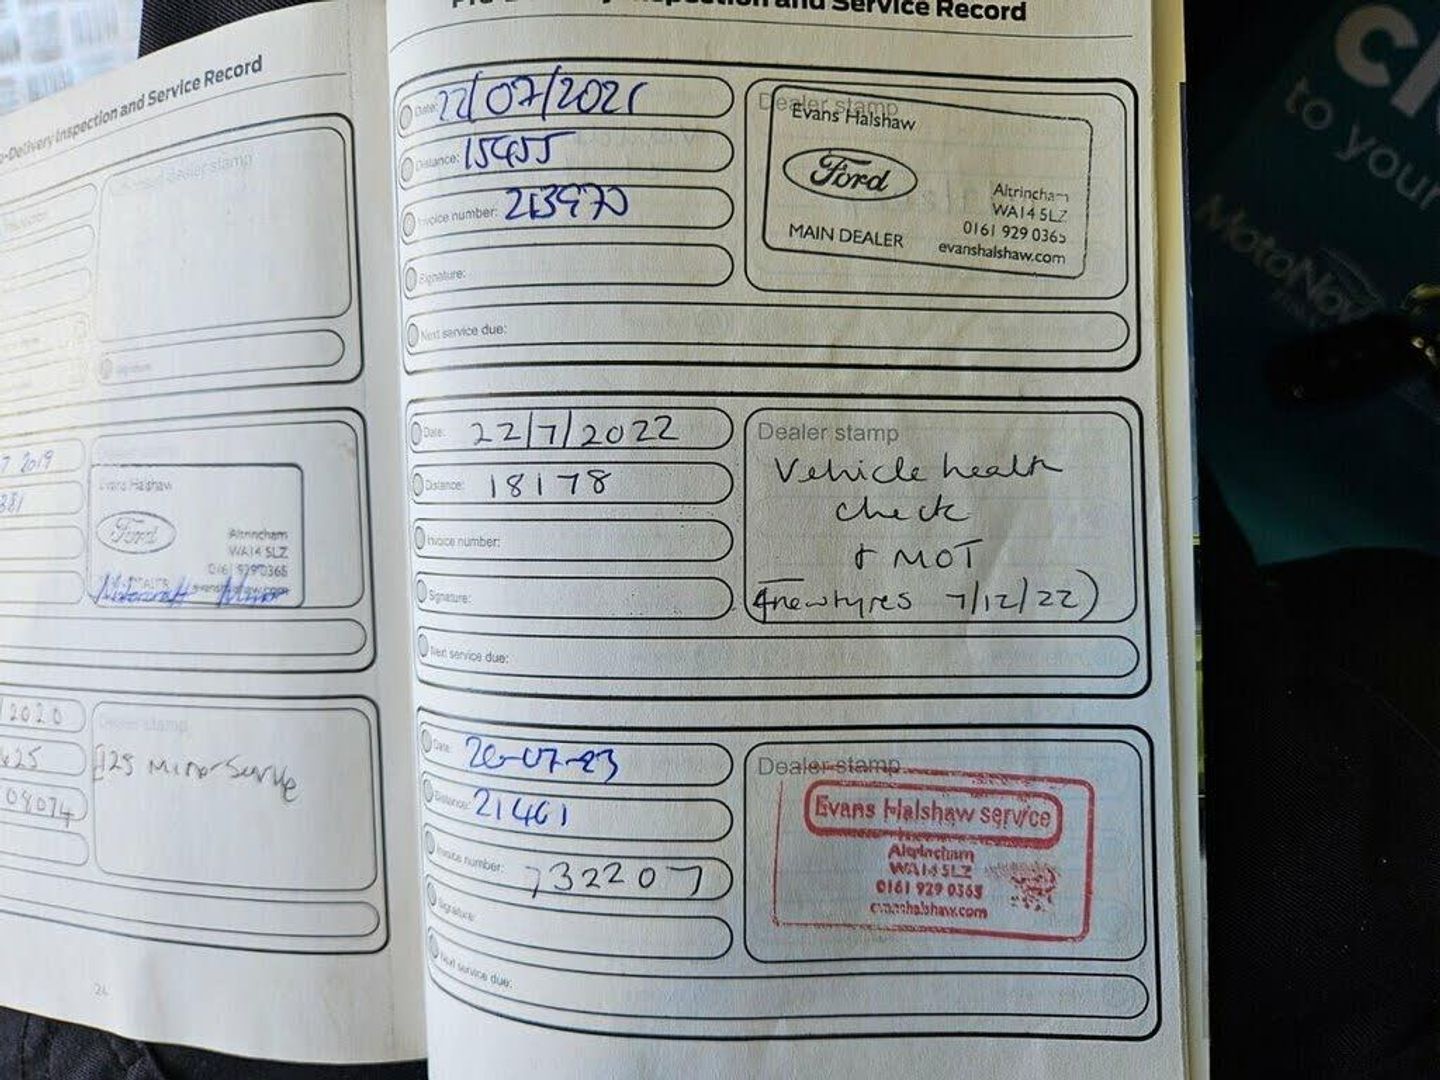 Inspection and Service Record
-Delivery Inspection and Service Record
dealer stamp
Signature:
7 2019
381
Dealer stamp
Evans Halshaw
Ford
Altrincham
WA14 5LZ
0161 929 0365
Motorcraft Minor
2020
625
08074
Dealer stamp
Minor Service
24
Date: 22/07/2021
Distance: 15455
Invoice number:
Signature:
Next service due:
Dealer stamp
Evans Halshaw
Ford
MAIN DEALER
Altrincham
WA14 5LZ
0161 929 0365
evanshalshaw.com
Date: 22/7/2022
Distance: 18178
Invoice number:
Signature:
Next service due:
Dealer stamp
Vehicle health
check
& MOT
(4 new tyres 7/12/22)
Date: 20-07-23
Distance: 21461
Invoice number: 732207
Signature:
Next service due:
Dealer stamp
Evans Halshaw service
Altrincham
WA14 5LZ
0161 929 0365
evanshalshaw.com
to your
MotoNov